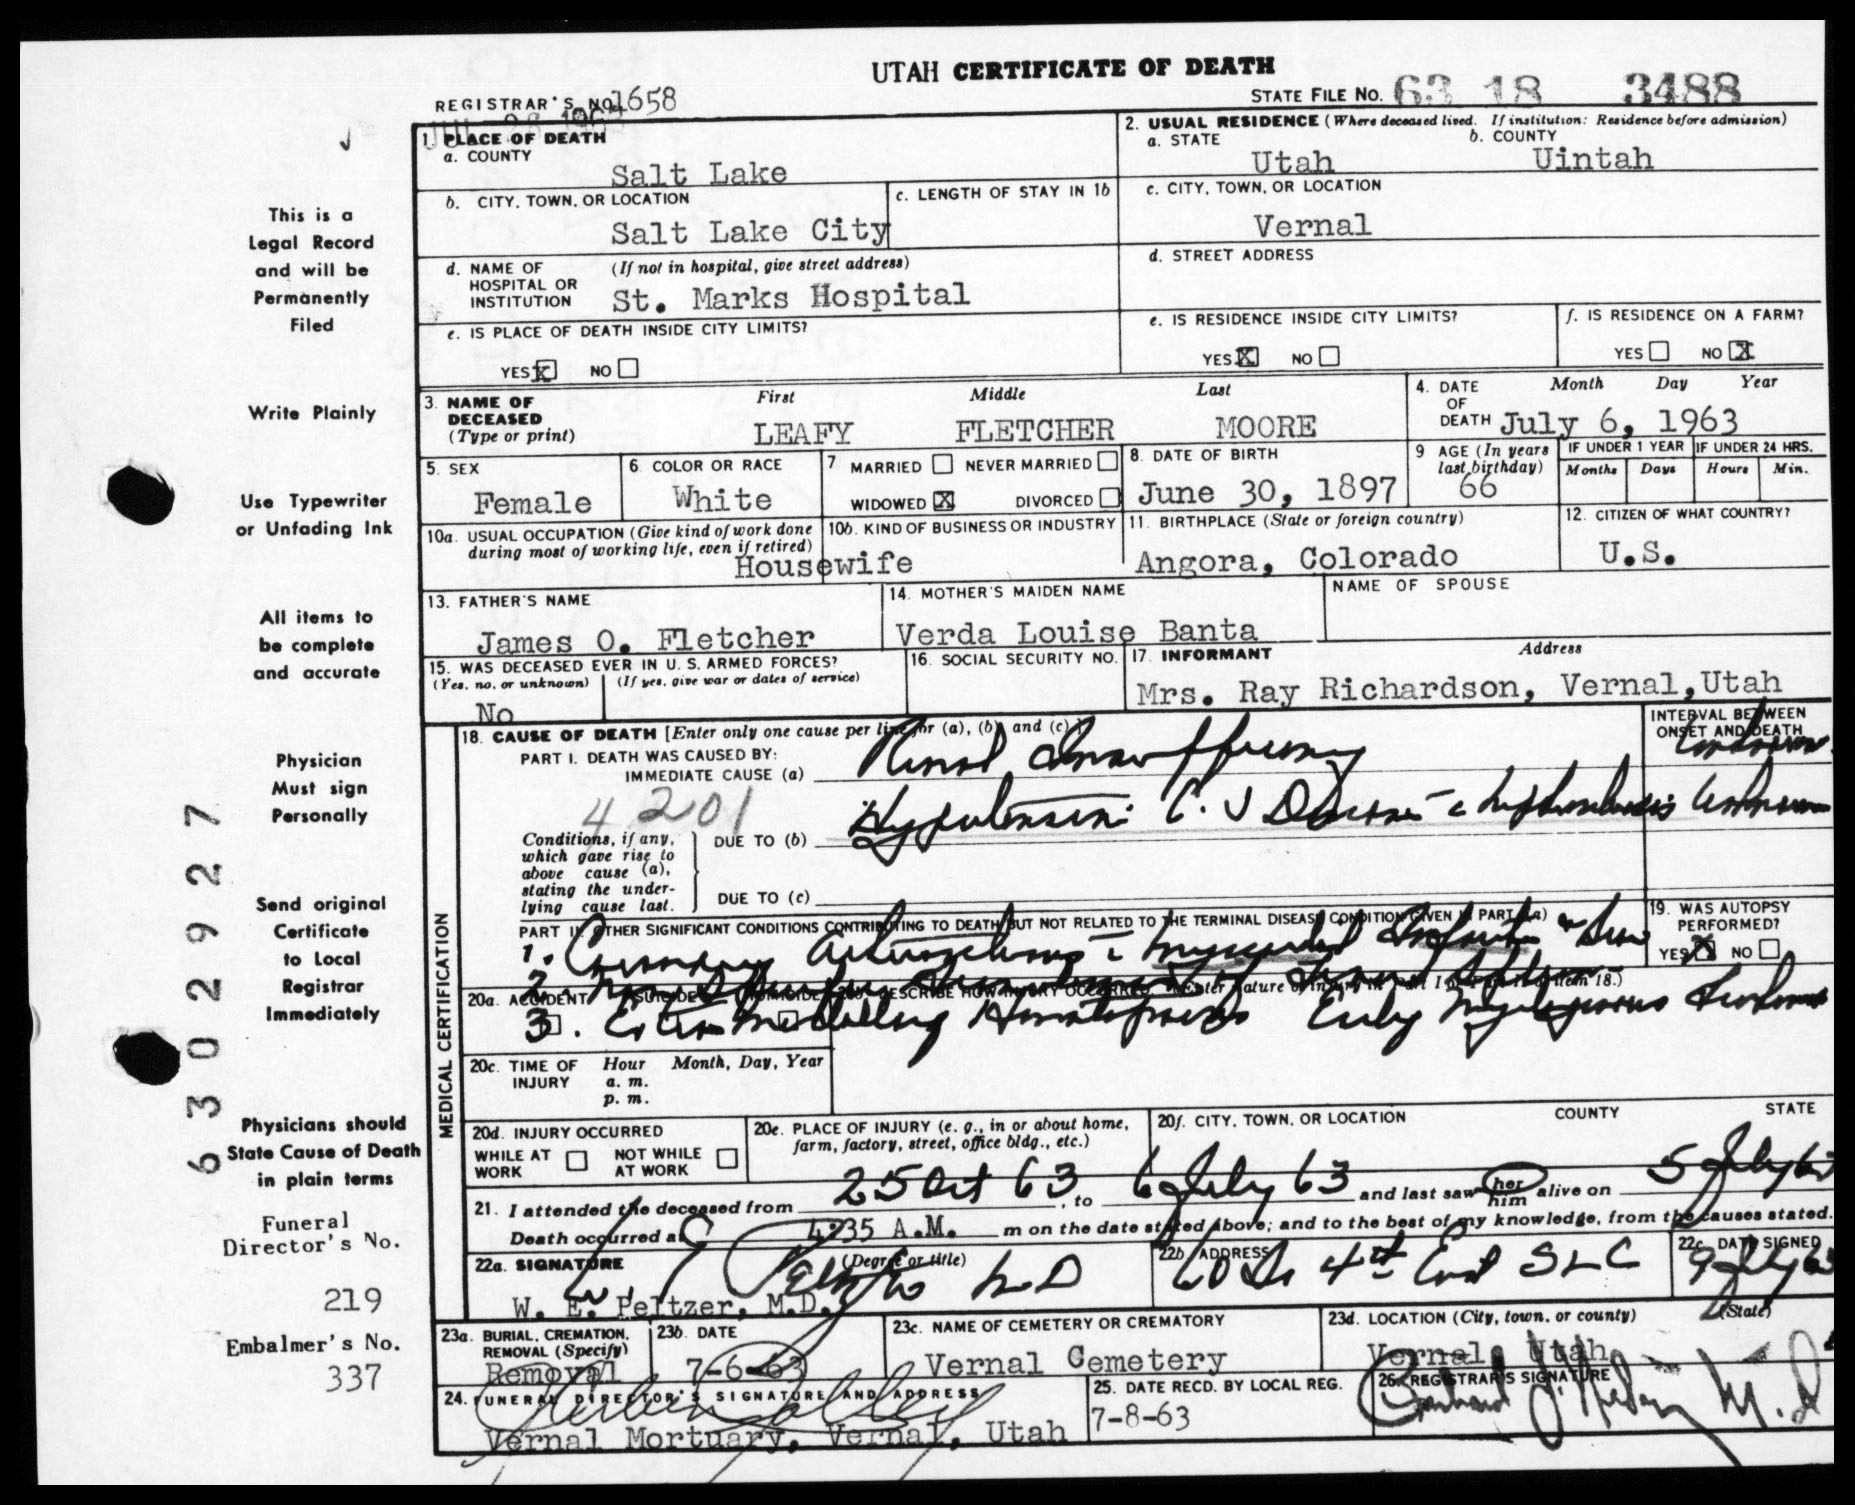 UTAH CERTIFICATE OF DEATH
REGISTRAR'S NO. 1658
STATE FILE NO. 63 18 3488
1. PLACE OF DEATH
a. COUNTY
Salt Lake
2. USUAL RESIDENCE (Where deceased lived. If institution: Residence before admission)
a. STATE b. COUNTY
Utah Uintah
b. CITY, TOWN, OR LOCATION
Salt Lake City
c. LENGTH OF STAY IN 1b
c. CITY, TOWN, OR LOCATION
Vernal
d. NAME OF HOSPITAL OR INSTITUTION (If not in hospital, give street address)
St. Marks Hospital
d. STREET ADDRESS
e. IS PLACE OF DEATH INSIDE CITY LIMITS?
YES X NO
e. IS RESIDENCE INSIDE CITY LIMITS?
YES X NO
f. IS RESIDENCE ON A FARM?
YES NO X
3. NAME OF DECEASED (Type or print)
First Middle Last
LEAFY FLETCHER MOORE
4. DATE OF DEATH Month Day Year
July 6, 1963
5. SEX
Female
6. COLOR OR RACE
White
7 MARRIED NEVER MARRIED
WIDOWED X DIVORCED
8. DATE OF BIRTH
June 30, 1897
9 AGE (In years last birthday)
66
IF UNDER 1 YEAR IF UNDER 24 HRS.
Months Days Hours Min.
10a. USUAL OCCUPATION (Give kind of work done during most of working life, even if retired)
10b. KIND OF BUSINESS OR INDUSTRY
Housewife
11. BIRTHPLACE (State or foreign country)
Angora, Colorado
12. CITIZEN OF WHAT COUNTRY?
U.S.
13. FATHER'S NAME
James O. Fletcher
14. MOTHER'S MAIDEN NAME
Verda Louise Banta
NAME OF SPOUSE
15. WAS DECEASED EVER IN U.S. ARMED FORCES?
(Yes, no, or unknown) (If yes, give war or dates of service)
No
16. SOCIAL SECURITY NO.
17. INFORMANT Address
Mrs. Ray Richardson, Vernal, Utah
MEDICAL CERTIFICATION
18. CAUSE OF DEATH [Enter only one cause per line for (a), (b), and (c).]
INTERVAL BETWEEN ONSET AND DEATH
PART I. DEATH WAS CAUSED BY:
IMMEDIATE CAUSE (a) Renal Insufficiency Unknown
4201
Conditions, if any, which gave rise to above cause (a), stating the underlying cause last.
DUE TO (b) Hypertensive C. V Disease Unknown
DUE TO (c)
PART II. OTHER SIGNIFICANT CONDITIONS CONTRIBUTING TO DEATH BUT NOT RELATED TO THE TERMINAL DISEASE CONDITION GIVEN IN PART I(a)
1. Coronary Arteriosclerosis myocardial
2.
3. Extra Medullary Hematopoiesis Early
19. WAS AUTOPSY PERFORMED?
YES X NO
20a. ACCIDENT SUICIDE HOMICIDE
20b. DESCRIBE HOW INJURY OCCURRED. (Enter nature of injury in Part I or Part II of item 18.)
20c. TIME OF INJURY Hour Month, Day, Year
a. m.
p. m.
20d. INJURY OCCURRED
WHILE AT WORK NOT WHILE AT WORK
20e. PLACE OF INJURY (e. g., in or about home, farm, factory, street, office bldg., etc.)
20f. CITY, TOWN, OR LOCATION COUNTY STATE
21. I attended the deceased from 25 Oct 63, to 6 July 63 and last saw her him alive on 5 July 63
Death occurred at 4:35 A.M. m on the date stated above; and to the best of my knowledge, from the causes stated.
22a. SIGNATURE (Degree or title)
Peltzer MD
W. E. Peltzer, M.D.
22b ADDRESS
60 So 4th East SLC
22c. DATE SIGNED
9 July 63
23a. BURIAL, CREMATION, REMOVAL (Specify)
Removal
23b. DATE
7-6-63
23c. NAME OF CEMETERY OR CREMATORY
Vernal Cemetery
23d. LOCATION (City, town, or county) (State)
Vernal Utah
24. FUNERAL DIRECTOR'S SIGNATURE AND ADDRESS
Vernal Mortuary, Vernal, Utah
25. DATE RECD. BY LOCAL REG.
7-8-63
26. REGISTRAR'S SIGNATURE
M.D.
This is a
Legal Record
and will be
Permanently
Filed
Write Plainly
Use Typewriter
or Unfading Ink
All items to
be complete
and accurate
Physician
Must sign
Personally
Send original
Certificate
to Local
Registrar
Immediately
Physicians should
State Cause of Death
in plain terms
Funeral
Director's No.
219
Embalmer's No.
337
6302927